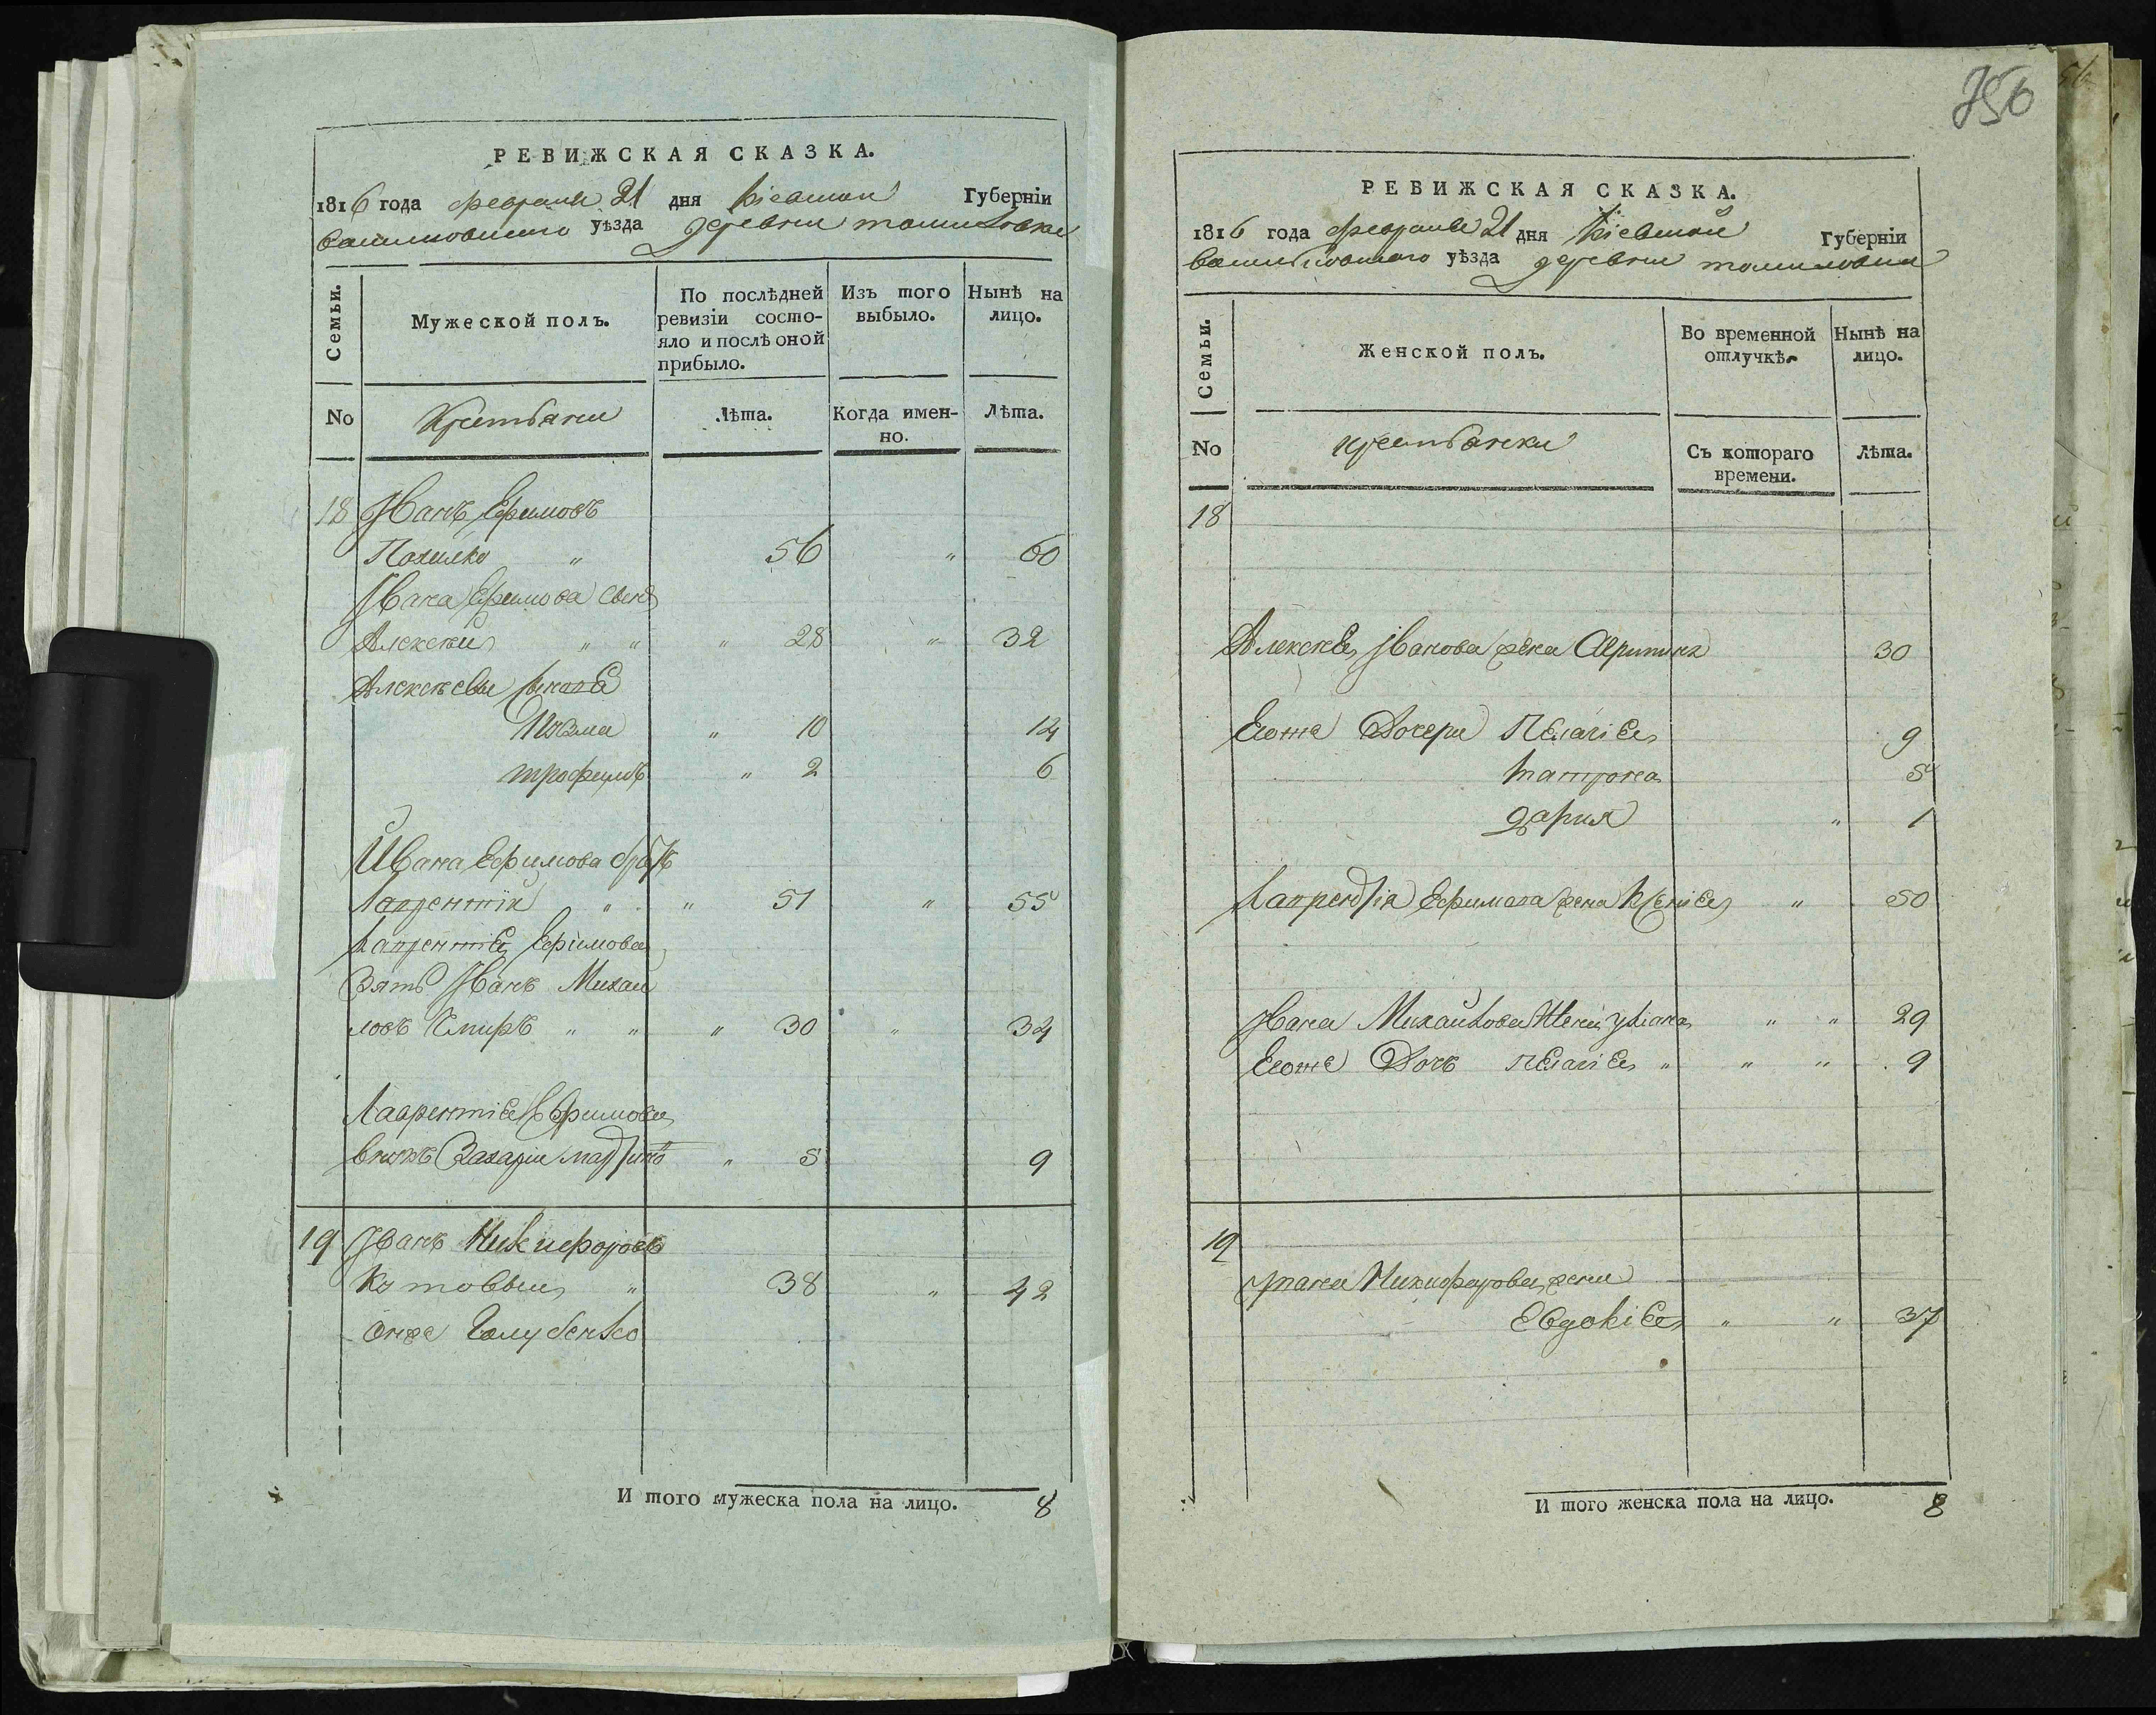 РЕВИЖСКАЯ СКАЗКА.
1816 года февраля 21 дня Кіевской Губерніи
васильковского уѣзда деревни томиловки
Семьи.
Мужеской полъ.
По послѣдней ревизіи состо-
яло и послѣ оной
прибыло.
Изъ того
выбыло.
Нынѣ на
лицо.
No
Крестьяни
Лѣта.
Когда имен-
но.
Лѣта.
18 Іванъ Ефимовъ
Похилко " 56 " 60
Івана Ефимова сынъ
Алексеи " " " 28 " 32
Алексѣевы
Кузма " 10 14
трофимъ " 2 6
Ивана Ефимова братъ
Лаврентій " " 51 " 55
Лаврентіа Ефимова
Зять Іванъ Михаи
ловъ " " " 30 " 34
Лаврентіа Ефимова
внукъ Захарии " 5 9
19 Іванъ Никифоровъ
" 38 " 42
онже Голубенко
И того мужеска пола на лицо. 8
756
РЕВИЖСКАЯ СКАЗКА.
1816 года февраля 21 дня Кіевской Губерніи
васильковского уѣзда деревни томиловки
Семьи.
Женской полъ.
Во временной
отлучкѣ.
Нынѣ на
лицо.
No
крестьянки
Съ котораго
времени.
Лѣта.
18
Алексѣя Іванова жена 30
Егоже Дочери Пелагіея 9
матрона 5
дария " 1
Лаврентія Ефимова жена Ксеніея " 50
Івана Михайлова жена уліана " " 29
Егоже Дочь пелагіея " " " 9
19
Івана Никифорова жена
Евдокіея " " 37
И того женска пола на лицо. 8